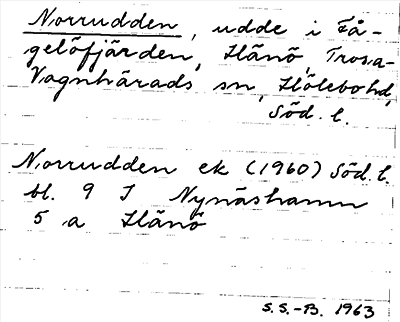 Norrudden, udde i Få-
gelöfjärden, Hånö, Trosa-
Vagnhärads sn, Hölebo hd,
Söd. l.
Norrudden ek (1960) Söd. l.
bl. 9 I Nynäshamn
5 a Hånö
S.S.-B. 1963